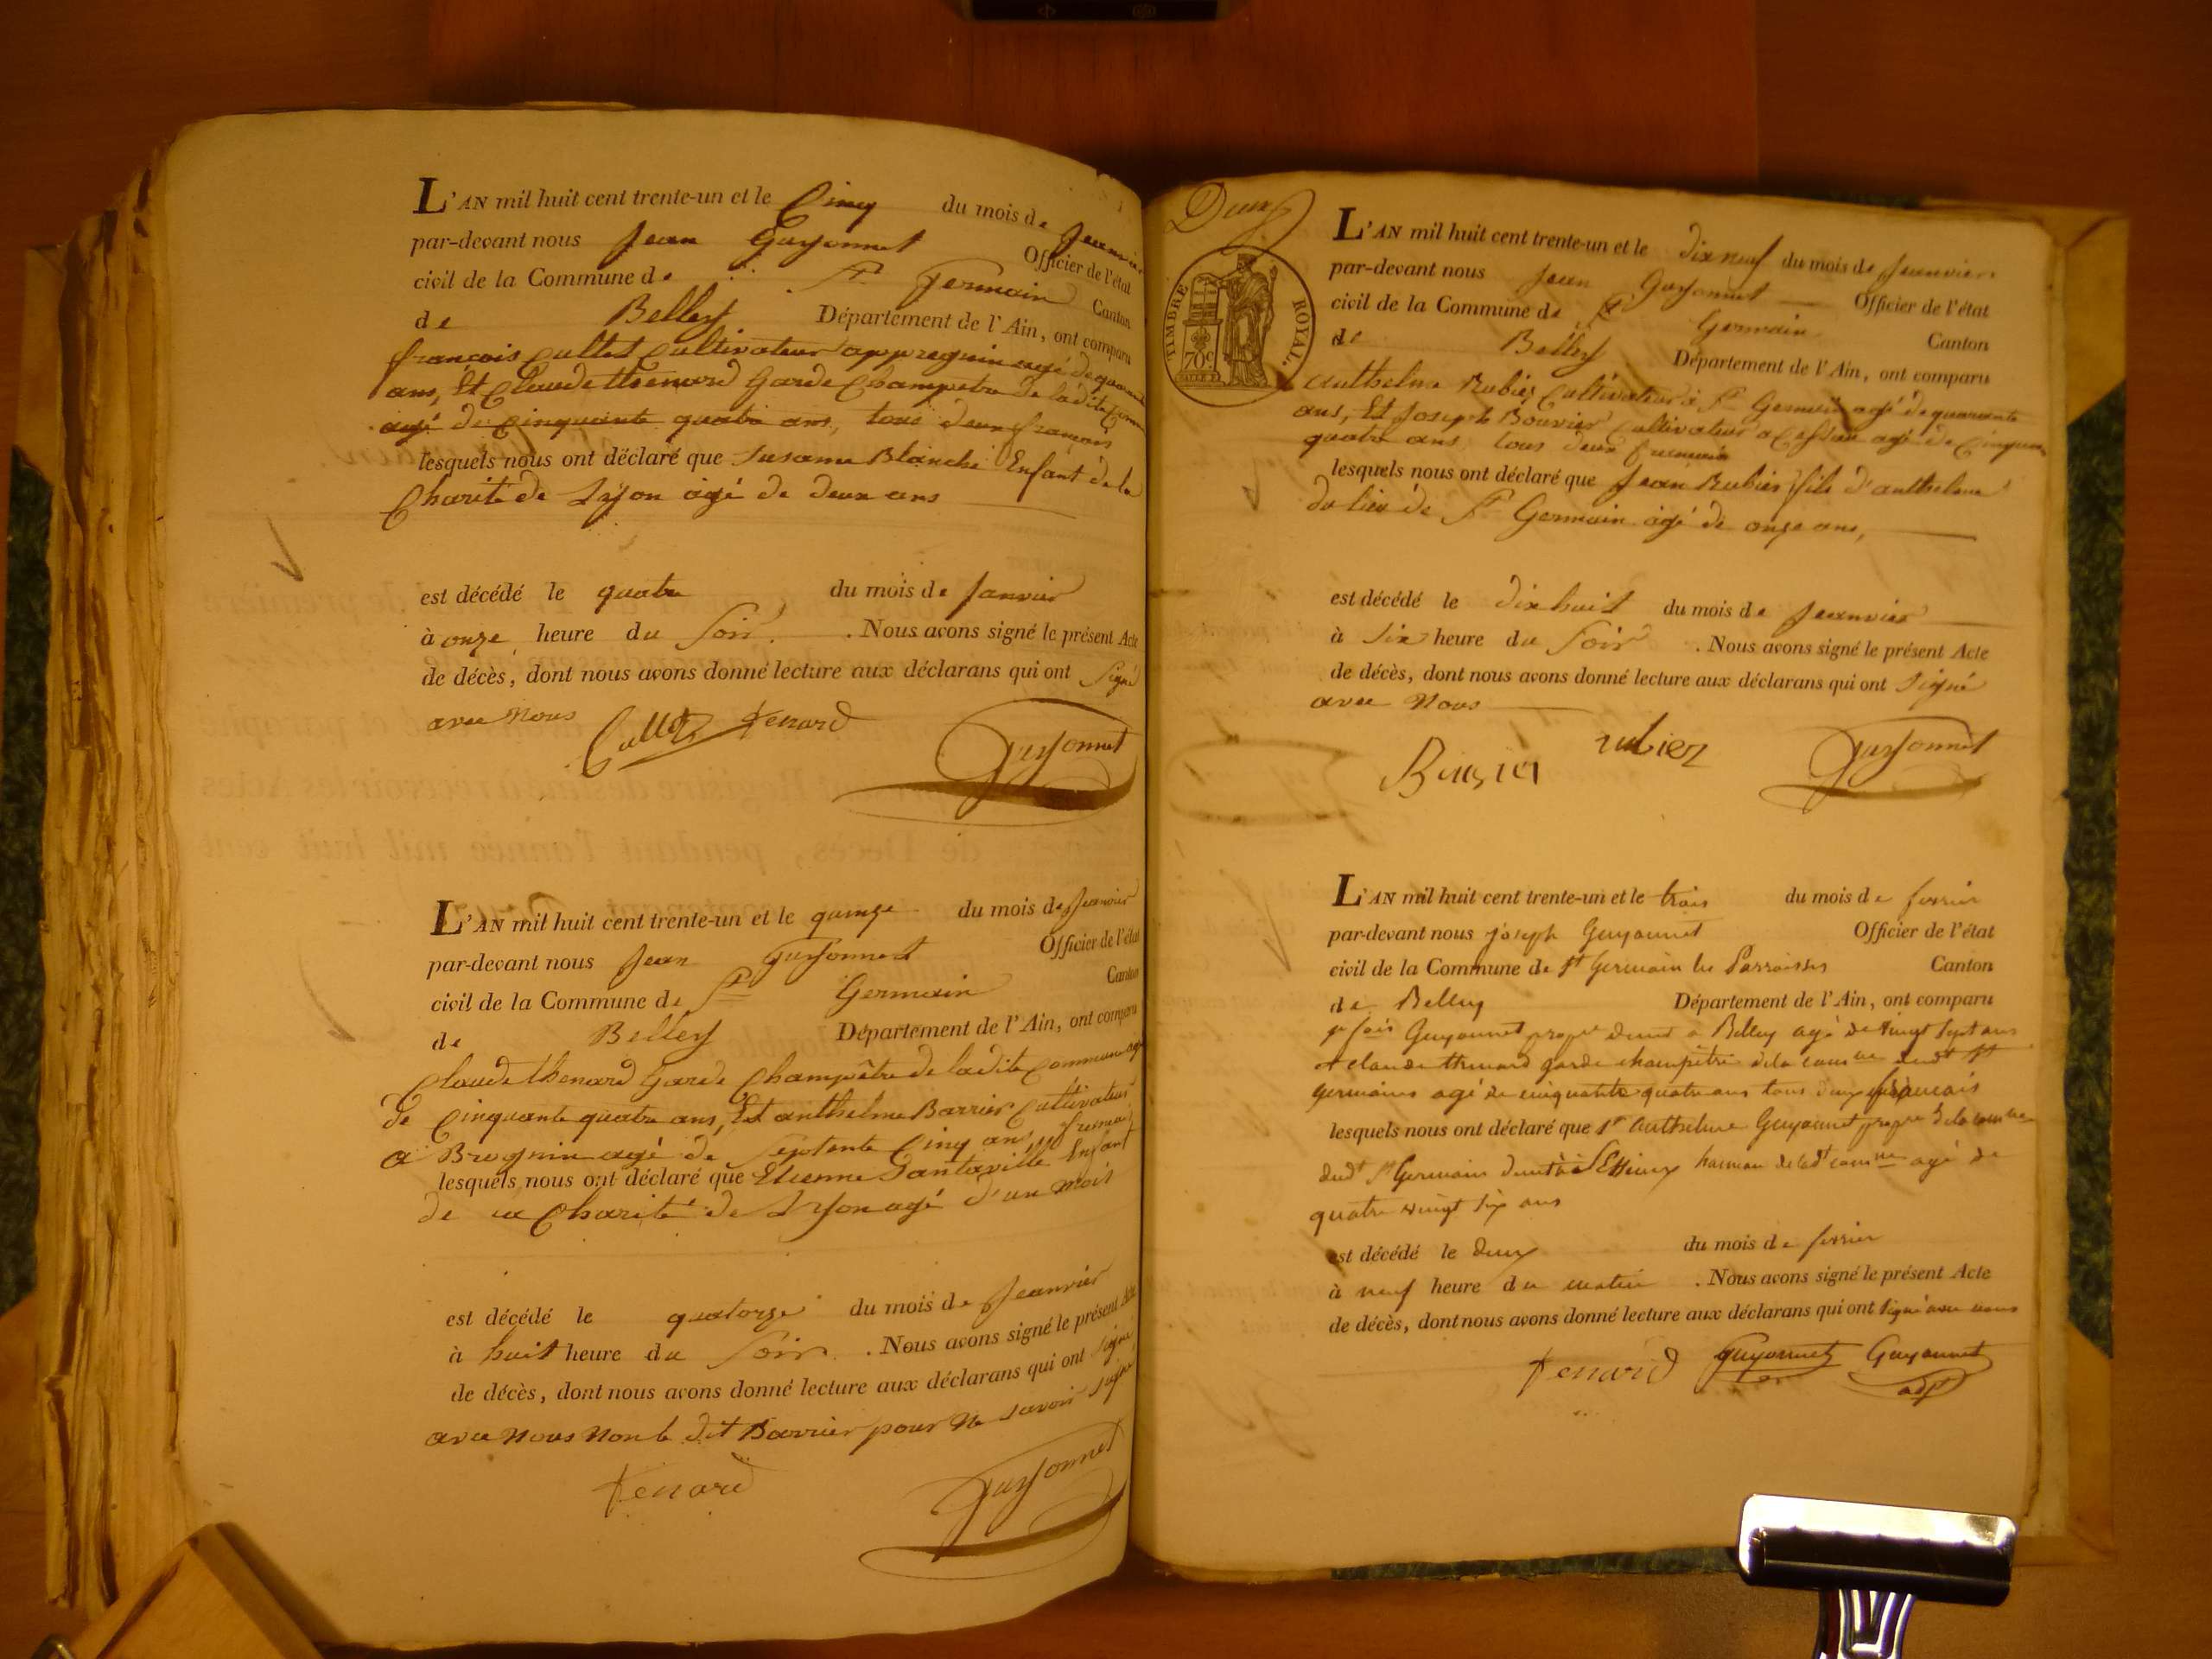 L'AN mil huit cent trente-un et le Cinq du mois de Jeanvier
par-devant nous Jean Guyonnet Officier de l'état
civil de la Commune de St Germain Canton
de Belley Département de l'Ain, ont comparu
françois Cullet Cultivateur appregnin agé de quarante
ans, Et Claude thenard Garde Champetre de la dite Comm
agé de Cinquante quatre ans, tous deux francais
lesquels nous ont déclaré que Susanne Blanche Enfant de la
Charité de Lyon agé de deux ans
est décédé le quatre du mois de Janvier
à onze heure du Soir. Nous avons signé le présent Acte
de décès, dont nous avons donné lecture aux déclarans qui ont Signé
avec Nous Cullet tenard Guyonnet
L'AN mil huit cent trente-un et le quinze du mois de Jeanvier
par-devant nous Jean Guyonnet Officier de l'état
civil de la Commune de St Germain Canton
de Belley Département de l'Ain, ont comparu
Claude thenard Garde Champêtre de la dite Commune agé
de Cinquante quatre ans, Et anthelme Barrier Cultivateur
a Brognin agé de Septente Cinq ans
lesquels nous ont déclaré que Etienne Enfant
de la Charité de Lyon agé d'un mois
est décédé le quatorze du mois de Jeanvier
à huit heure du Soir. Nous avons signé le présent Acte
de décès, dont nous avons donné lecture aux déclarans qui ont Signé
avec Nous Non le dit Barrier pour Ne Savoir Signé
tenard Guyonnet
Deux
TIMBRE ROYAL.
70c
L'AN mil huit cent trente-un et le dix neuf du mois de Jeanvier
par-devant nous Jean Guyonnet Officier de l'état
civil de la Commune de St Germain Canton
de Belley Département de l'Ain, ont comparu
Anthelme Rubier Cultivateur à St Germain agé de quarante
ans, Et Joseph Bouvier Cultivateur a agé de Cinquante
quatre ans tous deux francais
lesquels nous ont déclaré que Jean Rubier fils d'anthelme
du lieu de St Germain agé de onze ans,
est décédé le dix huit du mois de Jeanvier
à Six heure du Soir. Nous avons signé le présent Acte
de décès, dont nous avons donné lecture aux déclarans qui ont Signé
avec Nous
rubier Guyonnet
L'AN mil huit cent trente-un et le trois du mois de fevrier
par-devant nous joseph Guyonnet Officier de l'état
civil de la Commune de St Germain les Parroisses Canton
de Belley Département de l'Ain, ont comparu
Guyonnet a Belley agé de vingt sept ans
et claude thenard garde champêtre de la comune dudt St
germains agé de cinquante quatre ans tous deux français
lesquels nous ont déclaré que Sr anthelme Guyonnet propre de la comune
dudt St Germain hameau de ladt comune agé de
quatre vingt six ans
est décédé le deux du mois de fevrier
à neuf heure du matin. Nous avons signé le présent Acte
de décès, dont nous avons donné lecture aux déclarans qui ont signé avec nous
tenard Guyonnet Guyonnet
adjt